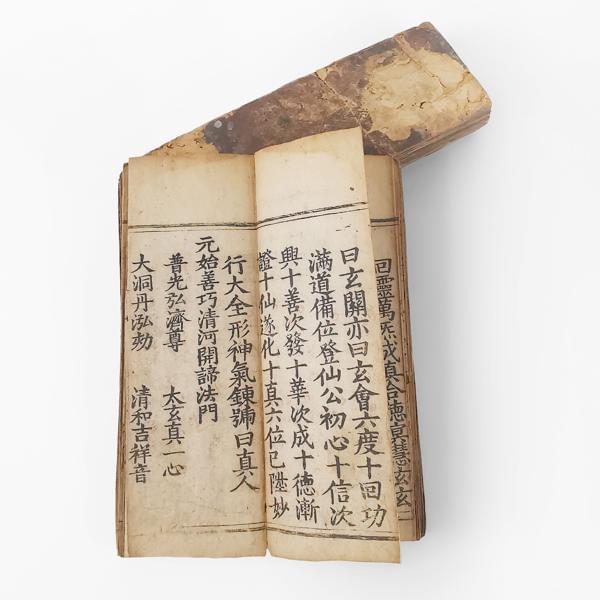 回靈萬炁成真合德真慧玄玄
曰玄關亦曰玄會六度十回功
滿道備位登仙公初心十信次
興十善次發十華次成十德漸
證十仙遂化十真六位已陞妙
行大全形神氣鍊號曰真人
元始善巧清河開諦法門
普光弘濟尊 太玄真一心
大洞丹泓勑 清和吉祥音